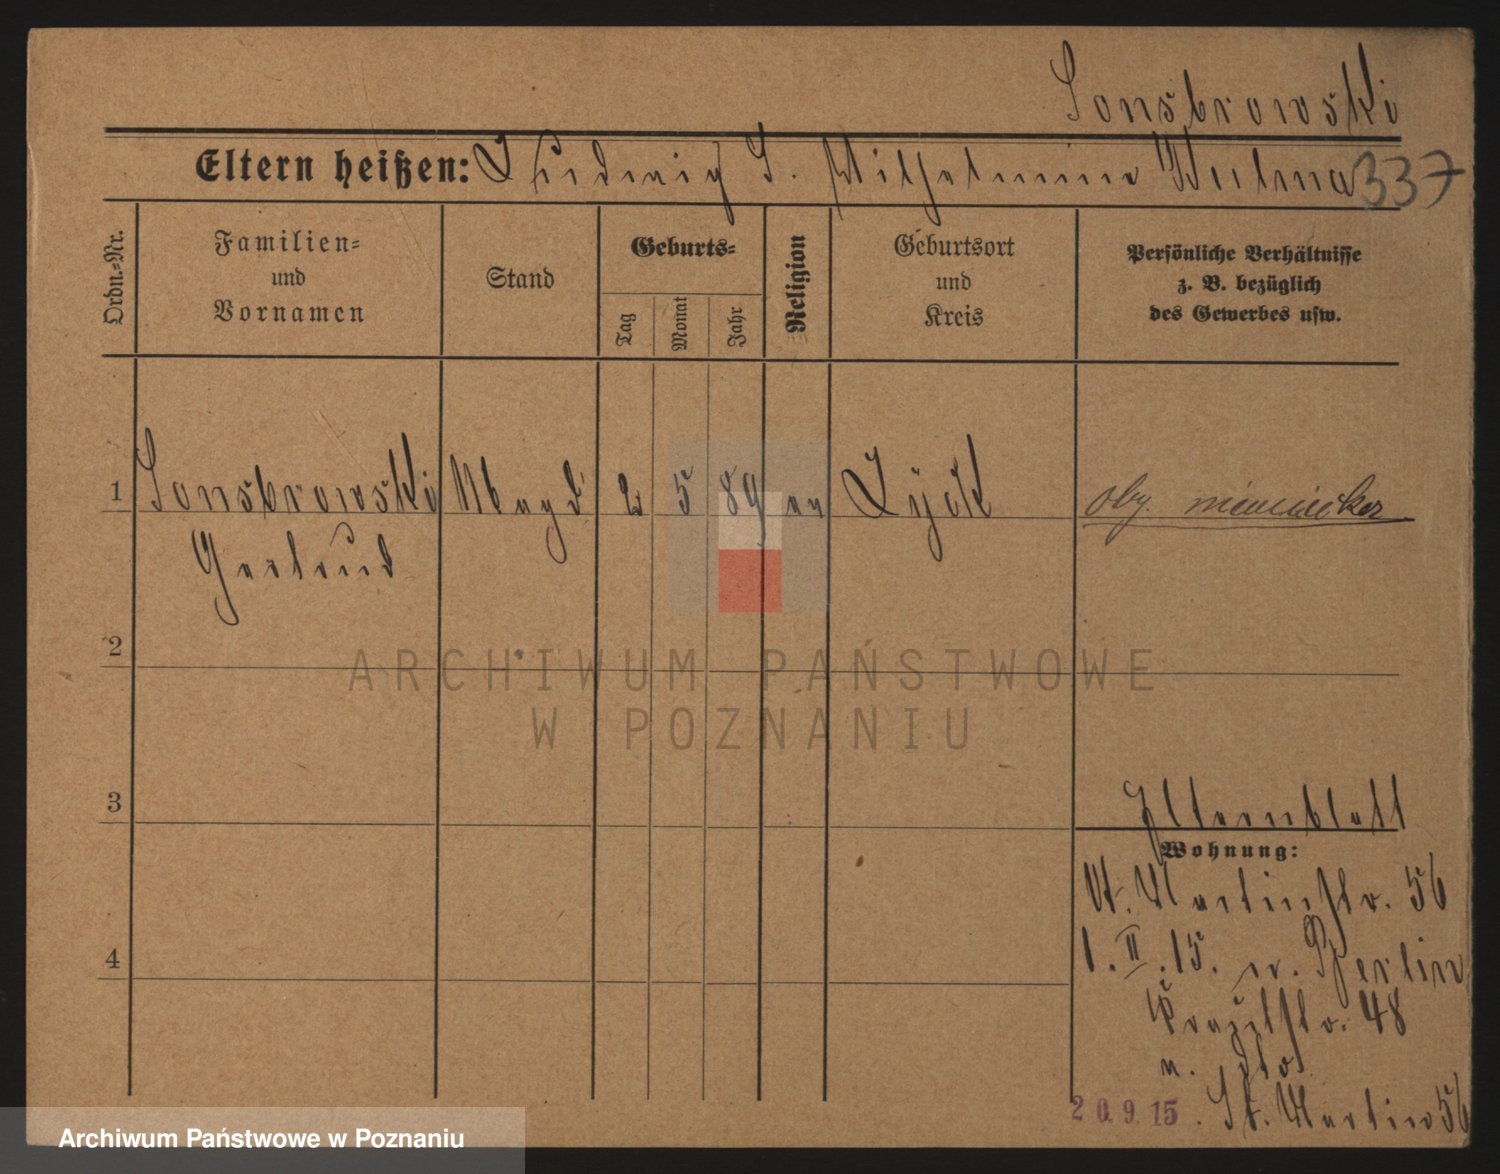 Sonsbrowski
Eltern heißen: Ludwig S. Wilhelmine
337
Ordn.-Nr.
Familien-
und
Vornamen
Stand
Geburts-
Tag
Monat
Jahr
Religion
Geburtsort
und
Kreis
Persönliche Verhältnisse
z. B. bezüglich
des Gewerbes usw.
1 Sonsbrowski Magd 2 5 89 ev Lyck
Gertrud
oby. niemiecka
2
3
4
Elternblatt
Wohnung:
St. Martinstr. 56
1. II. 15. n. Berlin
48
n.
20.9.15. St. Martin 56
ARCHIWUM PAŃSTWOWE
W POZNANIU
Archiwum Państwowe w Poznaniu